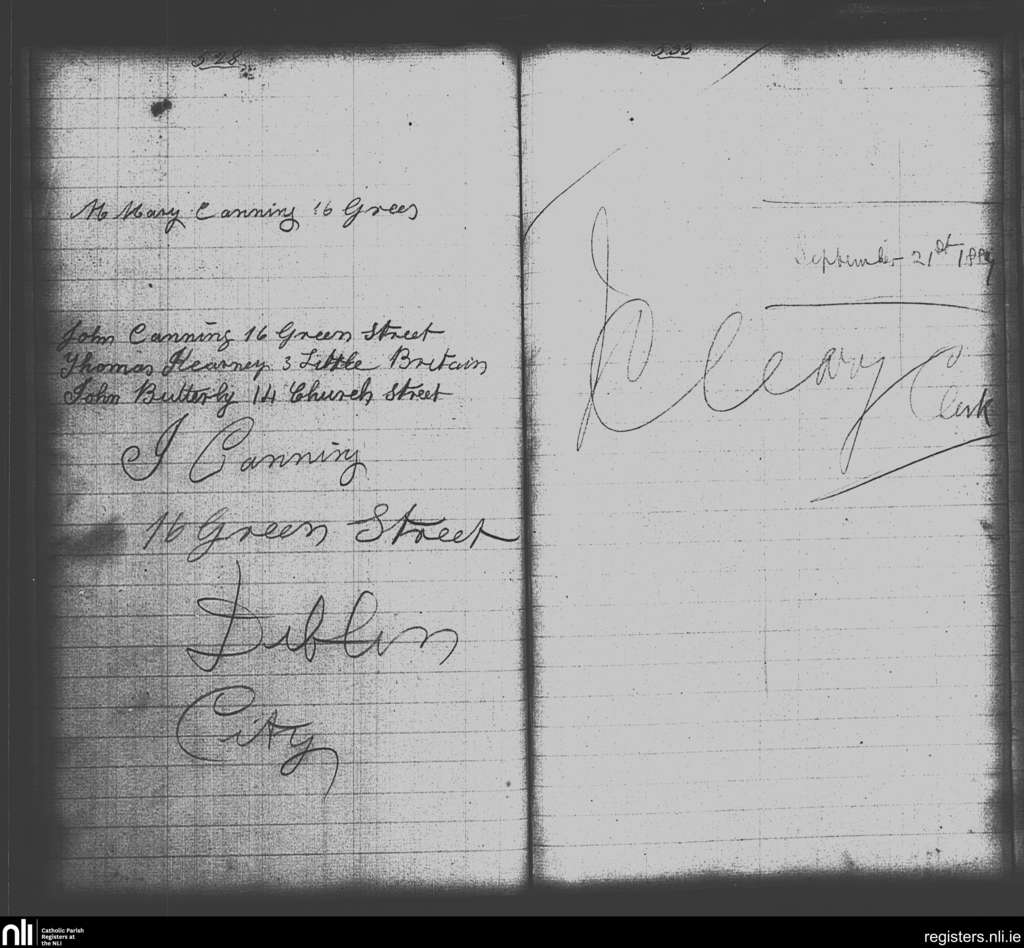 528
M Mary Canning 16 Green
John Canning 16 Green Street
Thomas Kearney 3 Little Britain
John Butterly 14 Church Street
J Canning
16 Green Street
Dublin
City
September 21st
Cleary Clerk
nli
Catholic Parish
Registers at
the NLI
registers.nli.ie